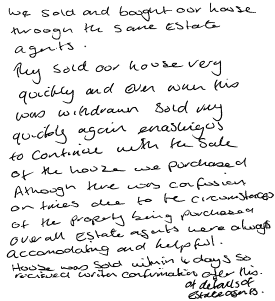 We sold and bought our house
through the same Estate
agents.
They sold our house very
quickly and even when this
was withdrawn sold very
quickly again enabling us
to continue with the sale
of the house we purchased
Although there was confusion
on times due to be circumstances
of the property being purchased
overall Estate agents were always
accomodating and helpful.
House was sold within 4 days so
recieved written confirmation after this.
of details of
estate agents.